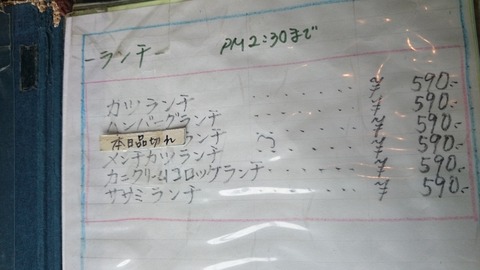 ーランチー PM2:30まで
カツランチ ・・・・・・ ¥ 590.-
ハンバーグランチ ・・・・・・ ¥ 590.-
本日品切れ ランチ ・・・・・ ¥ 590.-
メンチカツランチ ・・・・・・ ¥ 590.-
カニクリームコロッケランチ ・・・・ ¥ 590.-
ササミランチ ・・・・・・ ¥ 590.-